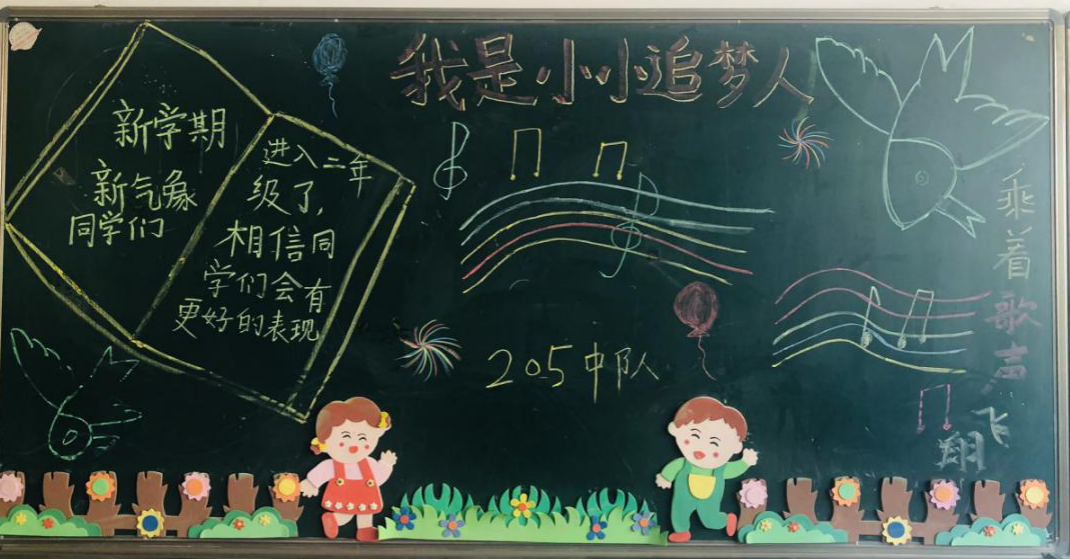 我是小小追梦人
新学期
新气象
同学们
进入二年
级了,
相信同
学们会有
更好的表现
205中队
乘着歌声飞翔